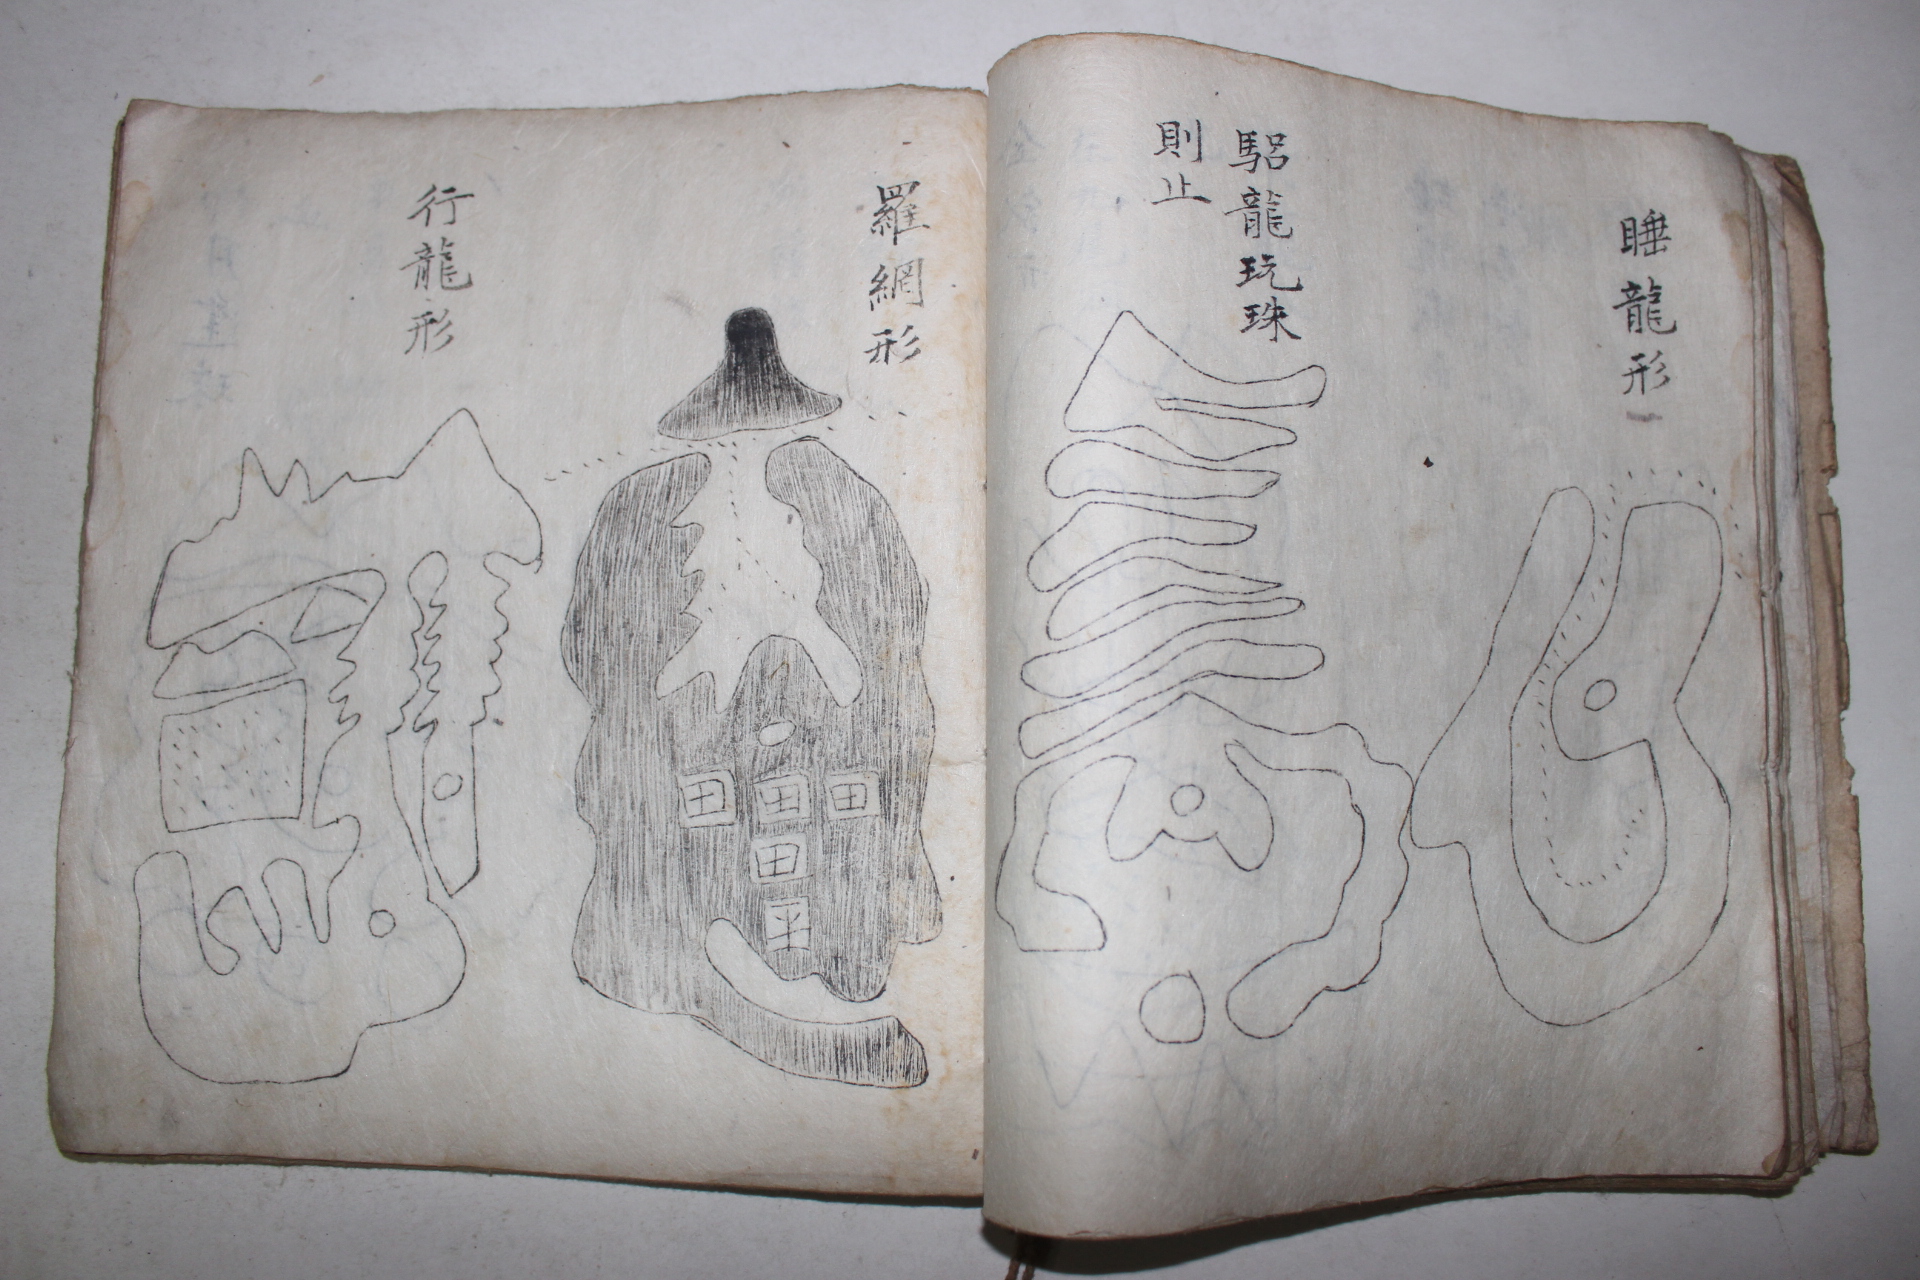 睡龍形
驪龍玩珠
則止
羅網形
田田田
田
平
行龍形